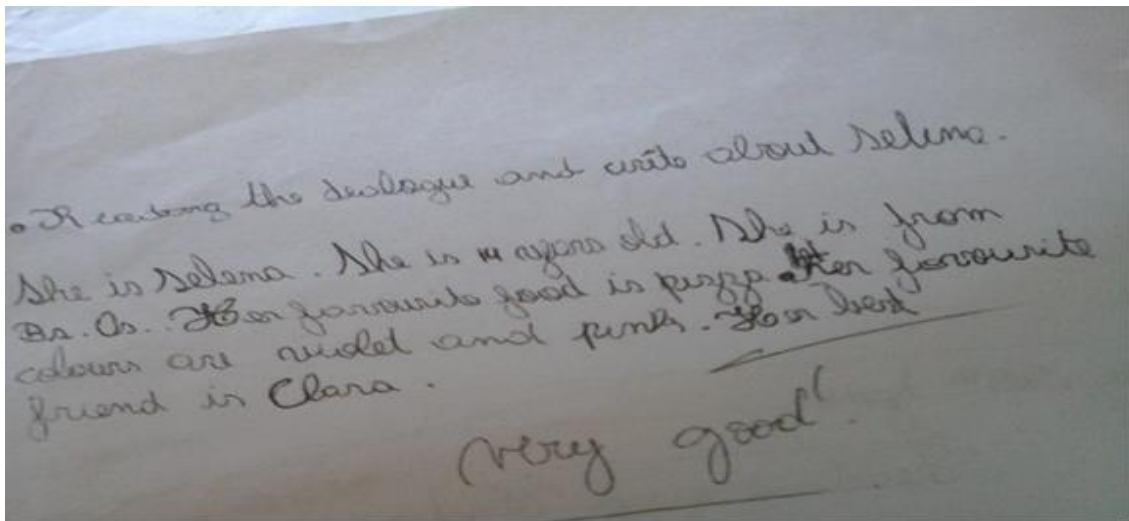 • Reading the deologue and write about Selima.
She is Selema. She is years old. She is from
Bs. As. Her favourite food is pizza. Her favourite
colours are violet and pink. Her best
friend is Clara.
very good!